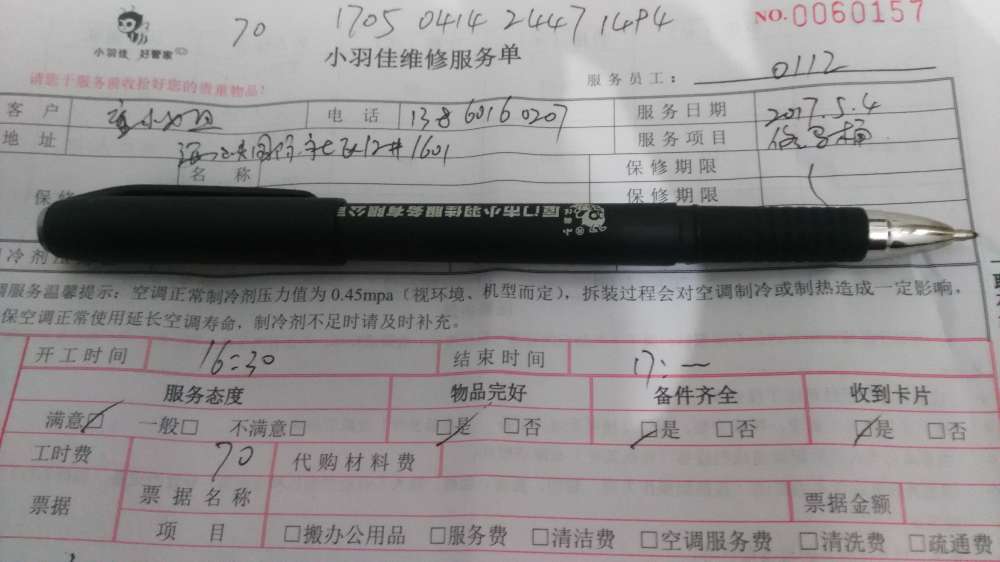 70 1705 0414 2447 1494 NO.0060157
小羽佳 好管家
小羽佳维修服务单
服务员工: 0112
请您于服务前收捡好您的贵重物品!
客户 电话 13860160207 服务日期 2017.5.4
地址 12# 1601 服务项目 修马桶
名称 保修期限
保修 保修期限
厦门市小羽佳服务有限公
小羽佳
冷剂
调服务温馨提示:空调正常制冷剂压力值为0.45mpa(视环境、机型而定),拆装过程会对空调制冷或制热造成一定影响,
保空调正常使用延长空调寿命,制冷剂不足时请及时补充。
开工时间 16:30 结束时间 17:
服务态度 物品完好 备件齐全 收到卡片
满意□ 一般□ 不满意□ □是 □否 □是 □否 □是 □否
工时费 70 代购材料费
票据 票据名称 票据金额
项目 □搬办公用品 □服务费 □清洁费 □空调服务费 □清洗费 □疏通费